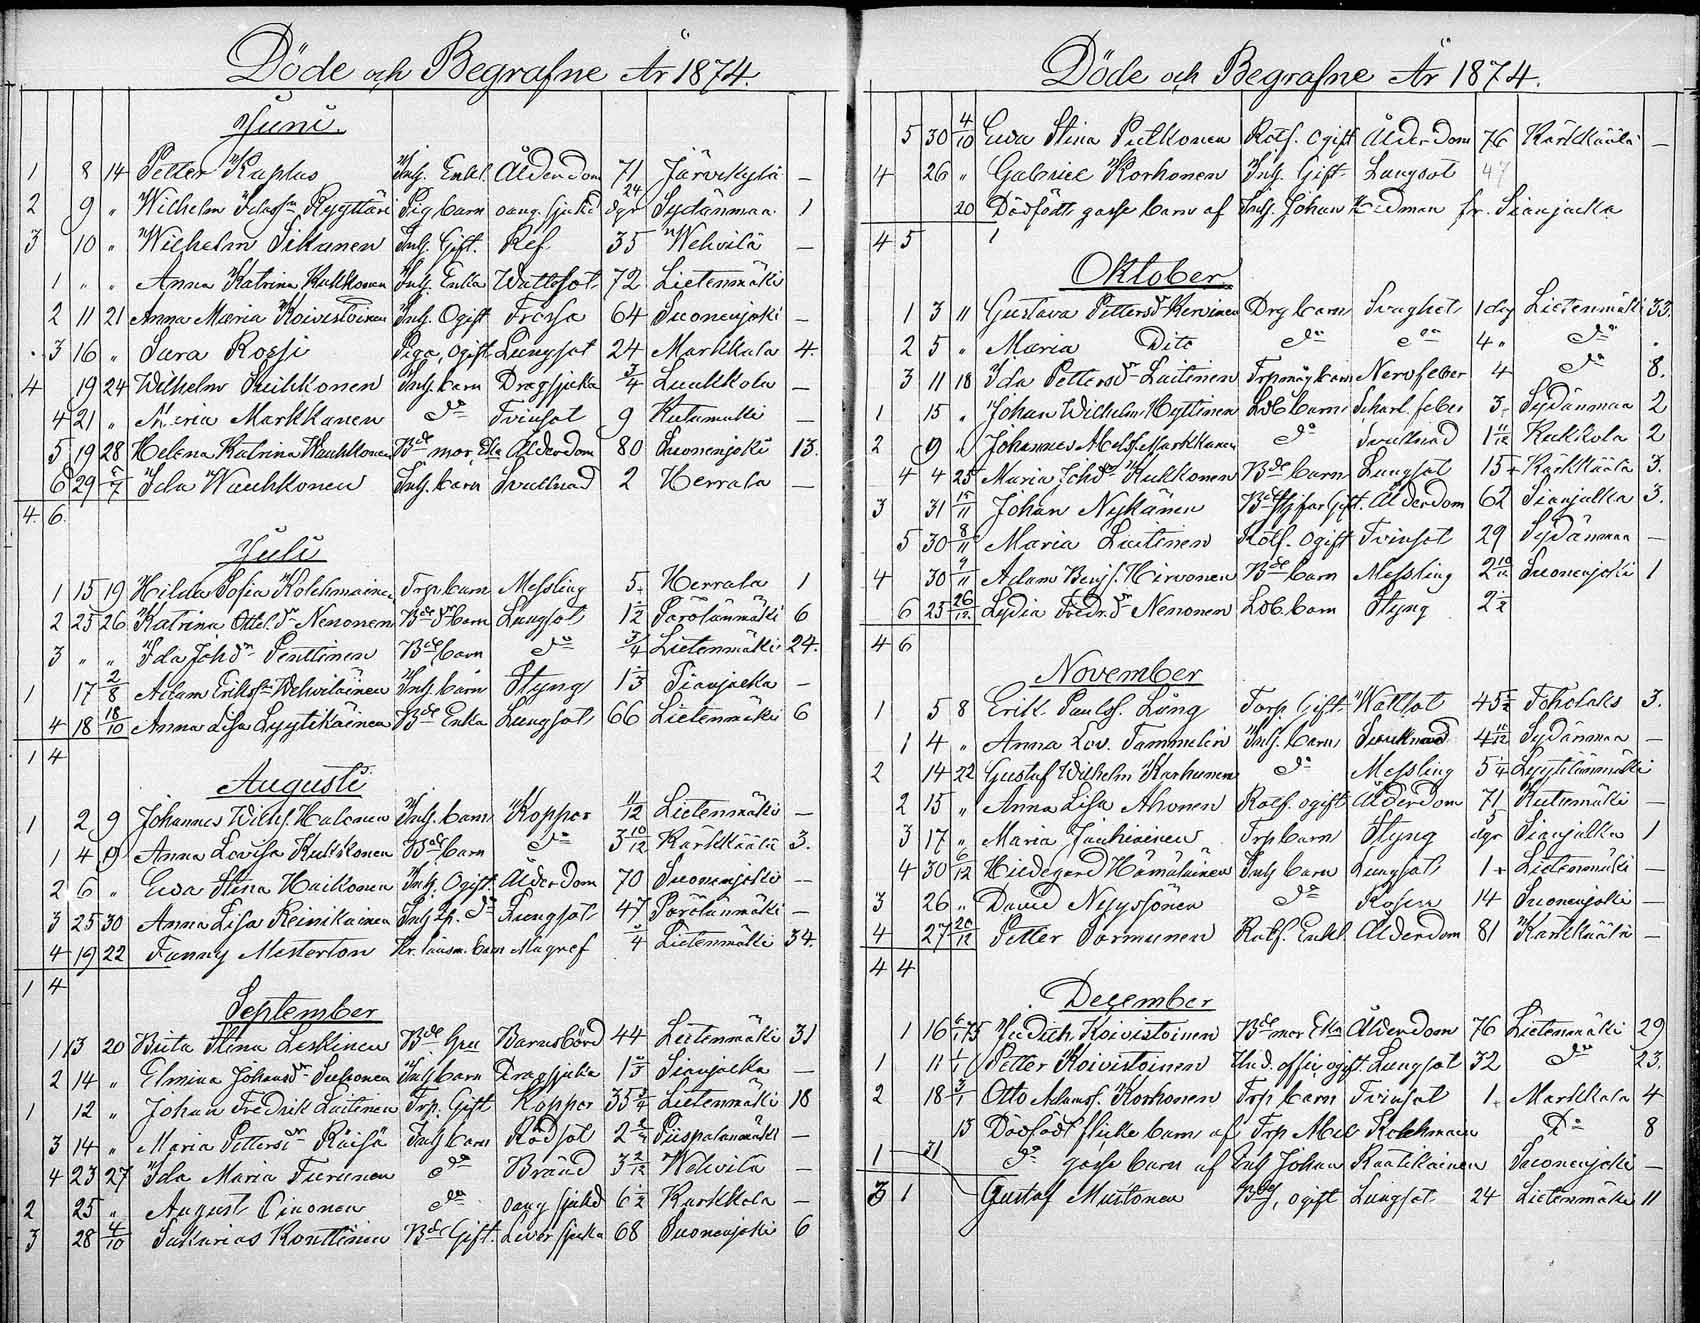 Döde och Begrafne År 1874.
Juni.
1 8 14 Petter Kuplus Inh. Enkl. Ålderdom 71 Järvikylä —
2 9 " Wilhelm Ryyttäri Pig barn 24 dgr Sydänmaa 1
3 10 " Wilhelm Sikanen Inh. Gift. Ref 35 Wehvilä —
1 " " Anna Katrina Kukkonen Inh. Enka Wattesot 72 Lietenmäki
2 11 21 Anna Maria Koivistoinen Inh. Ogift Frossa 64 Suonenjoki —
3 16 " Sara Rossi Piga, Ogift. Lungsot 24 Markkala 4.
4 19 24 Wilhelm Suihkonen Inh. barn Dragsjuka 3/4 Luukkola —
4 21 " Maria Markkanen do Tvinsot 9 Kutumäki —
5 19 28 Helena Katrina Wauhkonen Bde mor, Eka Ålderdom 80 Suonenjoki 13.
6 29 5/7 Ida Wauhkonen Inh. barn Svullnad 2 Herrala —
4. 6.
Juli
1 15 19 Hilda Sofia Kolehmainen Trp. barn Messling 5. Herrala 1
2 25 26 Katrina Ottel. dr Nenonen Bde dr barn Lungsot 1 1/2 Pörölänmäki 6
3 " " Ida Joh dr Penttinen Bde barn do 3/4 Lietenmäki 24.
1 17 2/8 Adam Eriksn Wehviläinen Inh. barn Styng 1 1/3 Sianjalka —
4 18 18/10 Anna Lisa Lyytikäinen Bde Enka Lungsot 66 Lietenmäki 6
1 4
Augusti
1 2 9 Johannes Wilh. Halonen Inh. barn Koppor 11/12 Lietenmäki —
1 4 9 Anna Lovisa Kukkonen Bde barn do 3 10/12 Kärkkäälä 3.
2 6 " Ewa Stina Haikonen Inh. Ogift Ålderdom 70 Suonenjoki —
3 25 30 Anna Lisa Reinikainen Inh. do Lungsot 47 Pörölänmäki —
4 19 22 Fanny Mesterton Kr. länsm. barn Magref 1/4 Lietenmäki 34.
1 4
September
1 13 20 Brita Stina Leskinen Bde Hru Barnsbörd 44 Lietenmäki 31
2 14 " Elmina Johansdr Suihkonen Inh barn Dragsjuka 1 1/3 Sianjalka —
1 12 " Johan Fredrik Laitinen Trp. Gift Koppor 35 3/4 Lietenmäki 18
3 14 " Maria Pettersdr Räisä Inh barn Rödsot 2 3/4 Piispalanmäki —
4 23 27 Ida Maria Turunen do Bränd 3 2/12 Wehvilä —
2 25 " August Oinonen do 6 1/2 Kurkkola —
3 28 4/10 Sakarias Konttinen Bde Gift. Lever sjuka 68 Suonenjoki 6
Döde och Begrafne År 1874.
5 30 4/10 Ewa Stina Pulkonen Rotf. Ogift Ålderdom 76 Kärkkäälä —
4 26 " Gabriel Korhonen Inh. Gift Lungsot 47
20 Dödfödt gosse barn af Inh. Johan Hedman fr. Sianjalka
4 5 1
Oktober
1 3 11 Gustava Pettersd Kervinen Drg barn Svaghet 1 dag Lietenmäki 33.
2 5 " Maria Dito do do 4 " do
3 11 18 Ida Pettersdr Laitinen Nervfeber 4 do 8.
1 15 " Johan Wilhelm Hyttinen Lbb barn Scharl. feber 3. Sydänmaa 2
2 9 " Johannes Markkanen do Svullnad 1 11/12 Kukkola 2
4 4 25 Maria Johdr Kukkonen Bde barn Lungsot 15 Kärkkäälä 3.
3 31 15/11 Johan Nykänen Gift. Ålderdom 62 Sianjalka 3.
5 30 8/11 Maria Laitinen Rotf. Ogift Tvinsot 29 Sydänmaa —
4 30 9/11 Adam Benj. Hirvonen Bde barn Messling 2 10/12 Suonenjoki 1
6 25 26/12 Lydia Fredr. dr Nenonen Lbb. barn Styng 2 1/2
4 6
November
1 5 8 Erik Paulss. Lång Torp. Gift Wattsot 45 1/2 Toholaks 3.
1 4 " Anna Lov. Tammelin Inh. barn Svullnad 4 11/12 Sydänmaa —
2 14 22 Gustaf Wilhelm Karhunen do Messling 5 1/4 Lyytilänmäki
2 15 " Anna Lisa Ahonen Rotf. ogift Ålderdom 71 Kutumäki —
3 17 " Maria Jauhiainen Trp barn Styng 5 dgr Sianjalka 1
4 30 6/12 Hildegard Hämäläinen Inh barn Lungsot 1 Lietenmäki —
3 26 " David Nyyssönen do Rosen 14 Suonenjoki —
4 27 20/12 Petter Tarmunen Rotf. Enkl. Ålderdom 81 Kärkkäälä —
4 4
December
1 16 6/1 75 Hedvik Koivistoinen Bde mor Eka Ålderdom 76 Lietenmäki 29
1 11 1/1 Petter Koivistoinen Und. offic. ogift Lungsot 32 do 23.
2 18 3/1 Otto Adamss. Korhonen Trp barn Tvinsot 1. Markkala 4
13 Dödfödt flicke barn af Trp Abel Kolehmain Do 8
1 31 do gosse barn af Inh Johan Raatikainen Suonenjoki —
3 1 Gustaf Mustonen ogift Lungsot 24 Lietenmäki 11